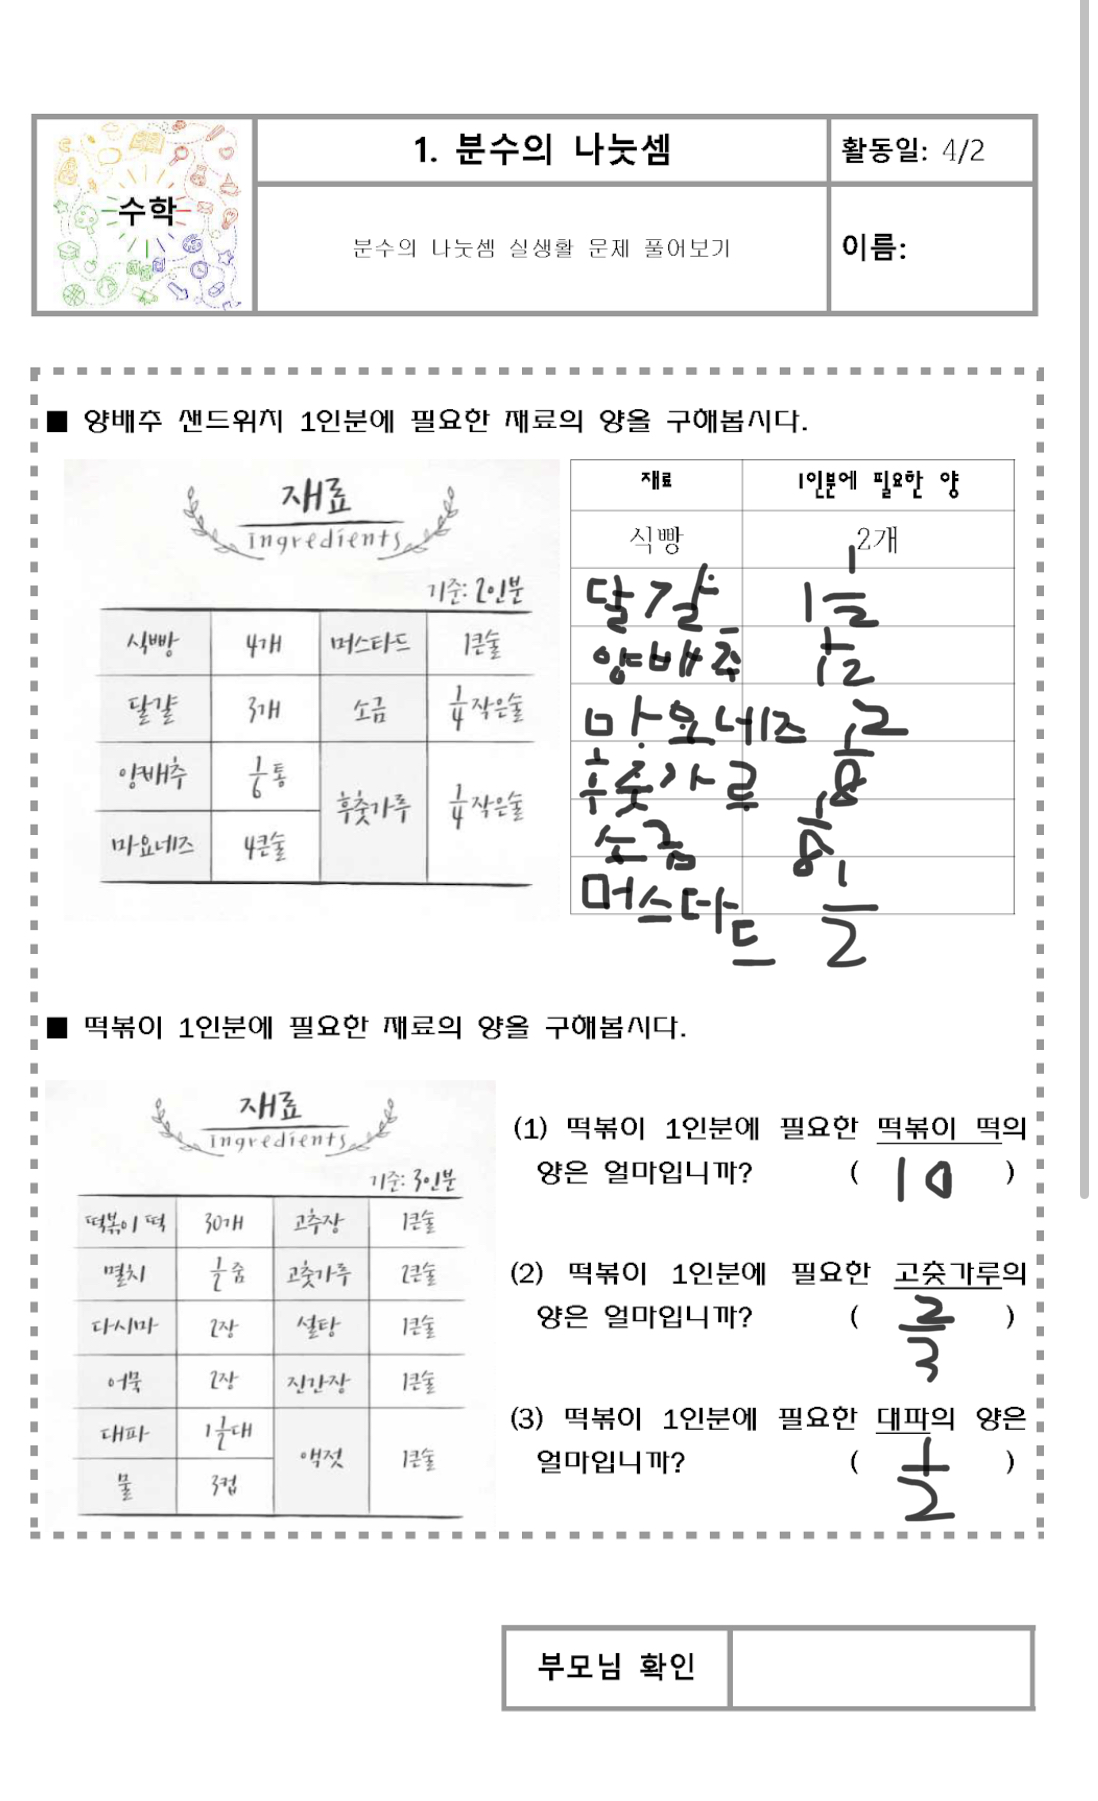 수학
1. 분수의 나눗셈
활동일: 4/2
분수의 나눗셈 실생활 문제 풀어보기
이름:
■ 양배추 샌드위치 1인분에 필요한 재료의 양을 구해봅시다.
재료
ingredients
기준: 2인분
식빵 4개 머스타드 1큰술
달걀 3개 소금 1/4 작은술
양배추 1/6 통 후춧가루 1/4 작은술
마요네즈 4큰술
재료 1인분에 필요한 양
식빵 2개
달걀 1 1/2
양배추 1/12
마요네즈 2
후춧가루 1/8
소금 1/8
머스타드 1/2
■ 떡볶이 1인분에 필요한 재료의 양을 구해봅시다.
재료
ingredients
기준: 3인분
떡볶이 떡 30개 고추장 1큰술
멸치 1/2 줌 고춧가루 2큰술
다시마 2장 설탕 1큰술
어묵 2장 진간장 1큰술
대파 1 1/2 대 액젓 1큰술
물 3컵
(1) 떡볶이 1인분에 필요한 떡볶이 떡의
양은 얼마입니까? ( 10 )
(2) 떡볶이 1인분에 필요한 고춧가루의
양은 얼마입니까? ( 2/3 )
(3) 떡볶이 1인분에 필요한 대파의 양은
얼마입니까? ( 1/2 )
부모님 확인